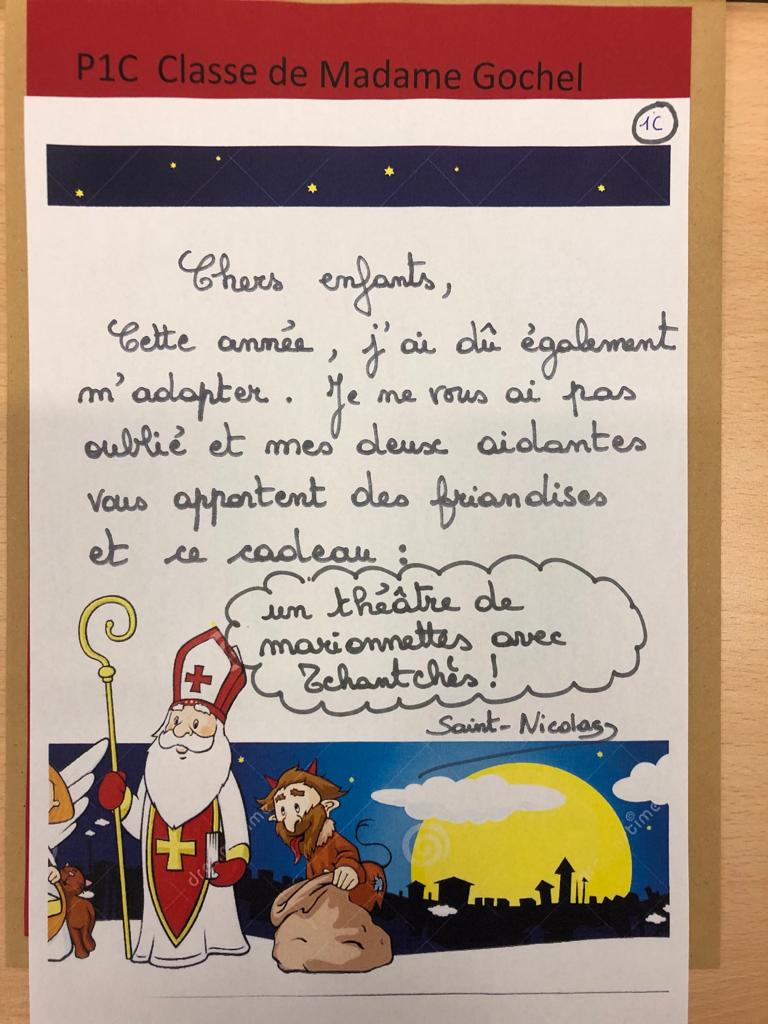 P1C Classe de Madame Gochel
1C
Chers enfants,
Cette année, j'ai dû également
m'adapter. Je ne vous ai pas
oublié et mes deux aidantes
vous apportent des friandises
et ce cadeau :
un théâtre de
marionnettes avec
Tchantchès !
Saint-Nicolas